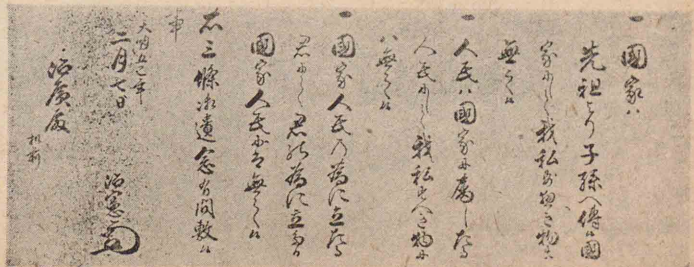 一 國家ハ
先祖より子孫へ傳候國
家にして我私すへき物にハ
無之候
一 人民ハ國家に属したる
人民にして我私すへき物に
ハ無之候
一 國家人民の為に立たる
君にして君の為に立たる
國家人民にハ無之候
右三條御遺念有間敷候
事
天明五巳年
二月七日
治憲
治廣殿
机前